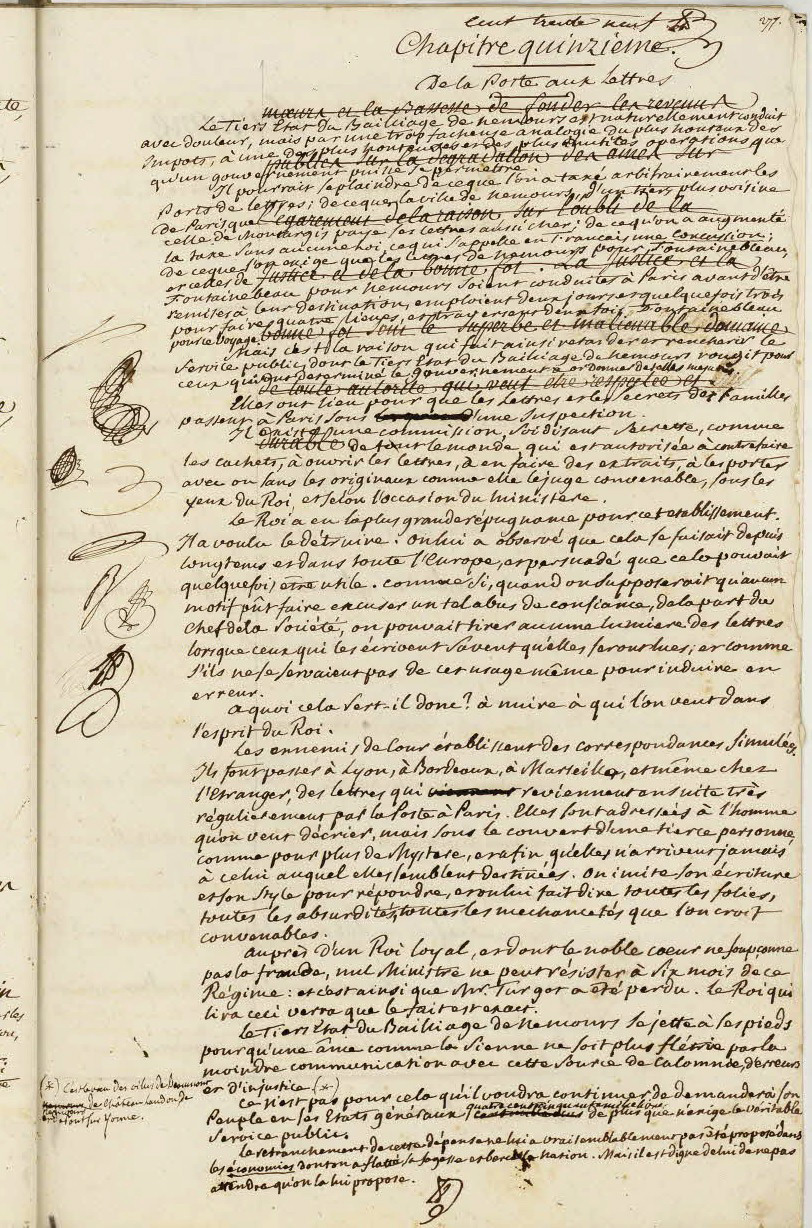 cent trente neuf
277.
Chapitre quinzieme.
De la Poste aux Lettres
mœurs et la Bassesse de fonder les revenus
Le Tiers Etat du Bailliage de nemours est naturellement conduit
avec douleur, mais par une trop facheuse analogie du plus honteux des
Impots, à une des plus honteuses et des plus inutiles operations que
publics sur la dégradation des ames sur
qu'un gouvernement puisse se permettre.
Il pourrait se plaindre de ce que l'on a taxé arbitrairement les
Ports de lettres; de ce que la ville de nemours, d'un tiers plus voisine
de Paris que
l'égarement de la raison, sur l'oubli de la
celle de Montargis paye ses lettres aussi cher; de ce qu'on a augmenté
la taxe sans aucune loi, ce qui s'appelle en Francais une concussion;
de ce que l'on exige que les lettres de nemours pour Fontainebleau,
et celles de
Justice et de la bonne foi. La Justice et la
Fontainebleau pour nemours soient conduites à Paris avant d'être
remises à leur destination, emploient deux jours et quelque fois trois
pour faire quatre lieues, et traversent deux fois Fontainebleau
pour le voyage.
bonne foi sont le superbe et inalienable domaine
Mais c'est la raison qui fait ainsi retarder et rencherir le
Service public, dont le Tiers Etat du Bailliage de nemours rougit pour
ceux qui ont determiné le Gouvernement à ordonner de telles mesures.
de toute autorité qui veut être respectée et
Elles ont lieu pour que les Lettres et les Secrets des Familles
passent à Paris sous d'une Suspection.
Il existe une commission, soi disant Secrette, comme
durable de tout le monde, qui est autorisée à contrefaire
les cachets, à ouvrir les lettres, à en faire des extraits, à les porter
avec ou sans les originaux comme elle le juge convenable, sous les
yeux du Roi, et selon l'occasion du ministère.
Le Roi a eu la plus grande répugnance pour cet etablissement.
Il a voulu le détruire. on lui a observé que cela se faisait depuis
longtems et dans toute l'Europe, et persuadé que cela pouvait
quelquefois être utile. comme si, quand on supposerait qu'aucun
motif pût faire excuser un tel abus de confiance, de la part du
chef de la Société, on pouvait tirer aucune lumiere des lettres
lorsque ceux qui les écrivent savent qu'elles seront lues; et comme
s'ils ne se servaient pas de cet usage même pour induire en
erreur.
a quoi cela sert-il donc? à nuire à qui l'on veut dans
l'esprit du Roi.
Les ennemis de Cour établissent des correspondances simulées.
Ils font passer à Lyon, à Bordeaux, à Marseille, et même chez
l'Etranger, des lettres qui reviennent ensuite très
régulierement par la Poste à Paris. Elles sont adressées à l'homme
qu'on veut décrier, mais sous le couvert d'une tierce personne
comme pour plus de Mystere, et afin qu'elles n'arrivent jamais
à celui auquel elles semblent destinées. on imite son écriture
et son Style pour répondre, et on lui fait dire toutes les folies,
toutes les absurdités, toutes les mechancetés que l'on croit
convenables.
auprès d'un Roi loyal, et dont le noble coeur ne soupçonne
pas la fraude, nul Ministre ne peut résister à six mois de ce
Régime: et c'est ainsi que Mr. Turgot a été perdu. Le Roi qui
lira ceci verra que le fait est exact.
Le Tiers Etat du Bailliage de nemours se jette à ses pieds
pour qu'une âme comme la sienne ne soit plus flétrie par la
moindre communication avec cette Source de Calomnie, d'erreurs
et d'injustice (*)
Ce n'est pas pour cela qu'il voudra continuer de demander à son
Peuple en ses Etats généraux quatre cent cinquante mille livres de plus que n'exige le véritable
Service public.
Le retranchement de cette dépense ne lui a vraisemblablement pas été proposé dans
les économies dont on a flatté sa sagesse et bercé la nation. Mais il est digne de lui de ne pas
attendre qu'on la lui propose.
(*) C'est le vœu des villes de Beaumont
de Château landon de
et de Pont sur Yonne.